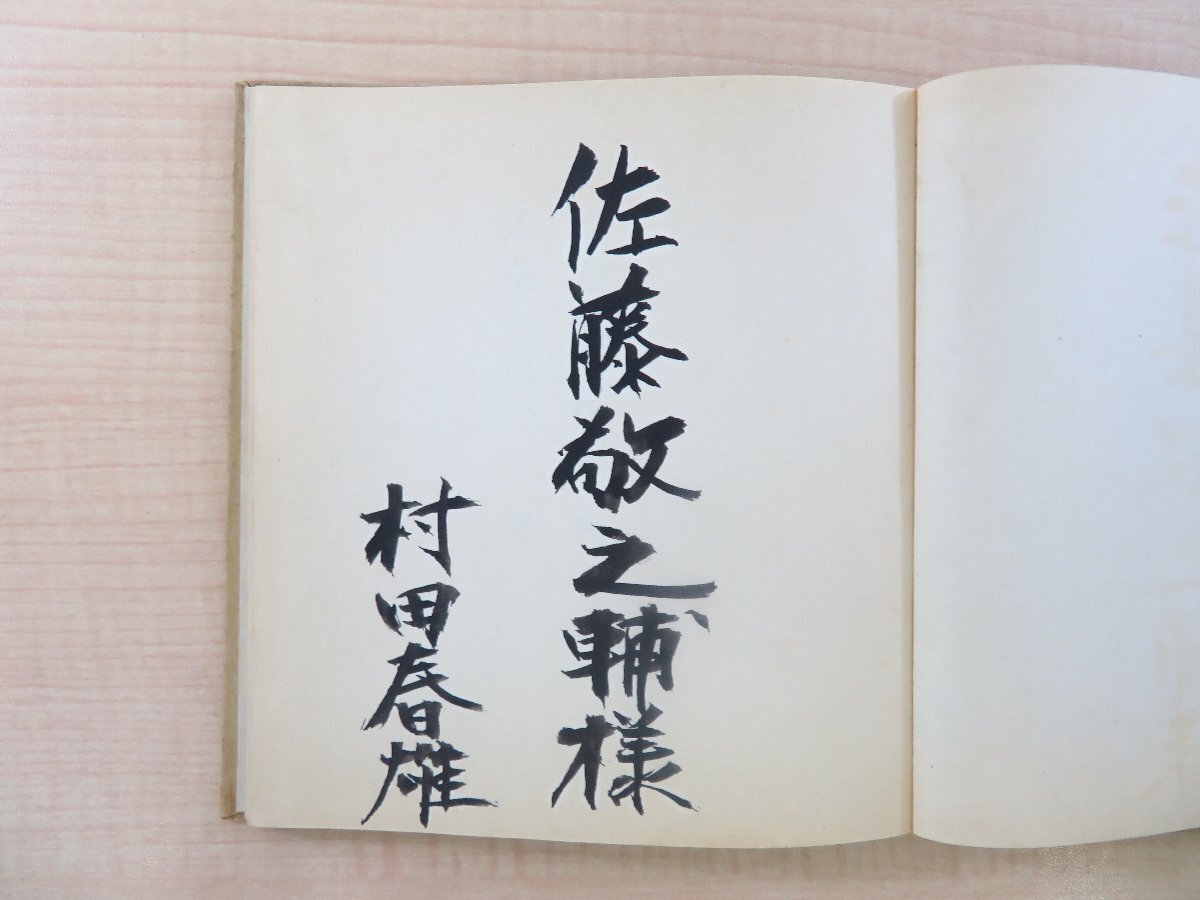 佐藤敬之輔様
村田春雄